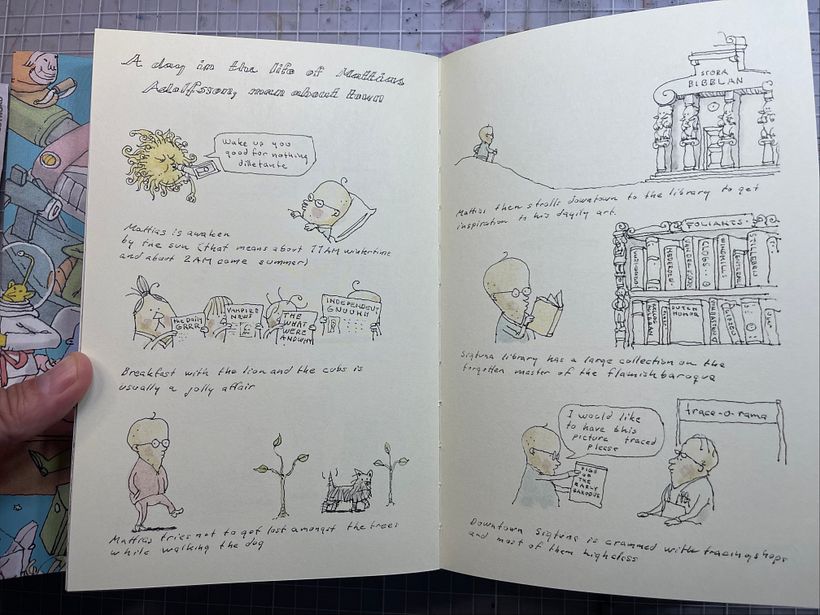 A day in the life of Mattias
Adolfsson, man about town
Wake up you
good for nothing
dilletante
Mattias is awaken
by the sun (that means about 11AM wintertime
and about 2AM come summer)
the Daily
GRRR
VAMPIRE
NEWS
THE
WHAT
WERE
AND WHY
INDEPENDENT
GNUUHH
Breakfest with the lion and the cubs is
usually a jolly affair
Mattias tries not to get lost amongst the trees
while walking the dog
STORA
BIBBLAN
Mattias then strolls downtown to the library to get
inspiration to his dayily art.
FOLIANTS
CLOGS
DUTCH
HUMOR
Sigtuna library has a large collection on the
forgotten master of the flamish baroque
trace-o-rama
I would like
to have this
picture traced
please
PIGS
OF
THE
EARLY
BAROQUE
Downtown Sigtuna is crammed with tracingshops
and most of them highclass